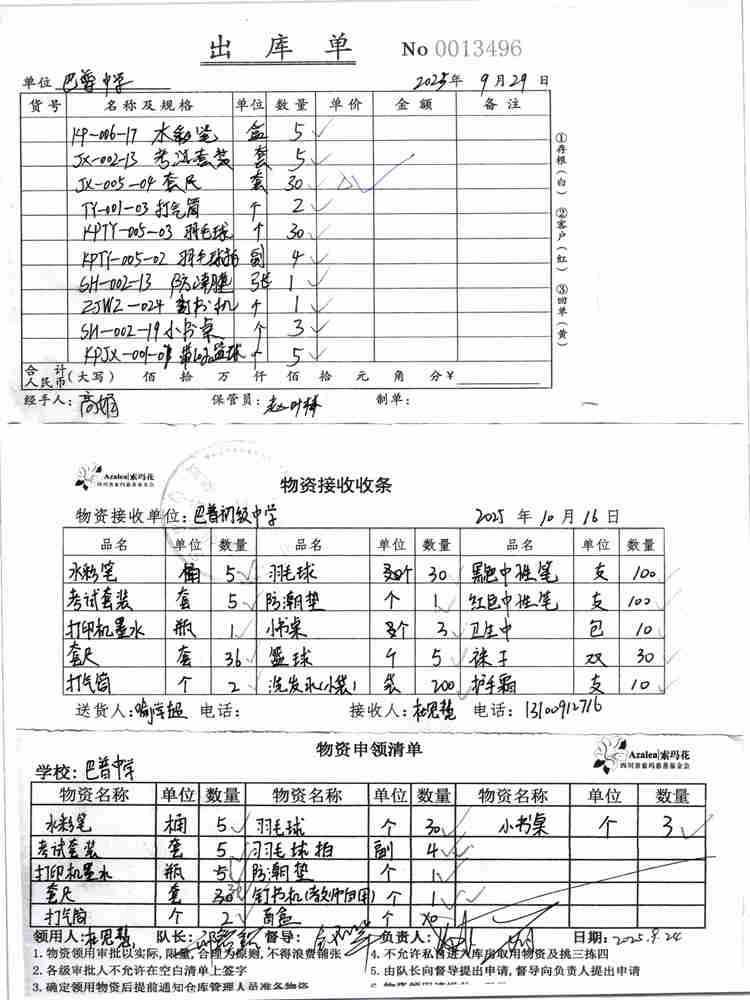 出库单 No 0013496
单位 巴普中学 2025年 9月29日
货号 名称及规格 单位 数量 单价 金额 备注
KP-006-17 水彩笔 盒 5
JX-002-13 考试套装 套 5
JX-005-04 套尺 套 30
TY-001-03 打气筒 个 2
KPTY-005-03 羽毛球 个 30
KPTY-005-02 羽毛球拍 副 4
SH-002-13 防潮垫 张 1
ZJWZ-024 订书机 个 1
SH-002-19 小书桌 个 3
KPJX-001-01 带logo篮球 个 5
合计人民币(大写) 佰 拾 万 仟 佰 拾 元 角 分 ¥
经手人: 高娟 保管员: 制单:
①存根(白) ②客户(红) ③回单(黄)
Azalea|索玛花
四川省索玛慈善基金会
物资接收收条
物资接收单位: 巴普初级中学 2025年10月16日
品名 单位 数量 品名 单位 数量 品名 单位 数量
水彩笔 桶 5 羽毛球 个 30 黑色中性笔 支 100
考试套装 套 5 防潮垫 个 1 红色中性笔 支 100
打印机墨水 瓶 1 小书桌 个 3 卫生巾 包 10
套尺 套 36 篮球 个 5 袜子 双 30
打气筒 个 2 洗发水(小袋) 袋 200 护手霜 支 10
送货人: 电话: 接收人: 杜思慧 电话: 13100912716
物资申领清单
Azalea|索玛花
四川省索玛慈善基金会
学校: 巴普中学
物资名称 单位 数量 物资名称 单位 数量 物资名称 单位 数量
水彩笔 桶 5 羽毛球 个 30 小书桌 个 3
考试套装 套 5 羽毛球拍 副 4
打印机墨水 瓶 5 防潮垫 个 1
套尺 套 30 订书机(教师自用) 个 1
打气筒 个 2 个
领用人: 杜思慧 队长: 督导: 负责人: 日期: 2025.9.24
1. 物资领用审批以实际,限量,合理为原则,不得浪费铺张
4. 不允许私自进入库房取用物资及挑三拣四
2. 各级审批人不允许在空白清单上签字
5. 由队长向督导提出申请,督导向负责人提出申请
3. 确定领用物资后提前通知仓库管理人员准备物资